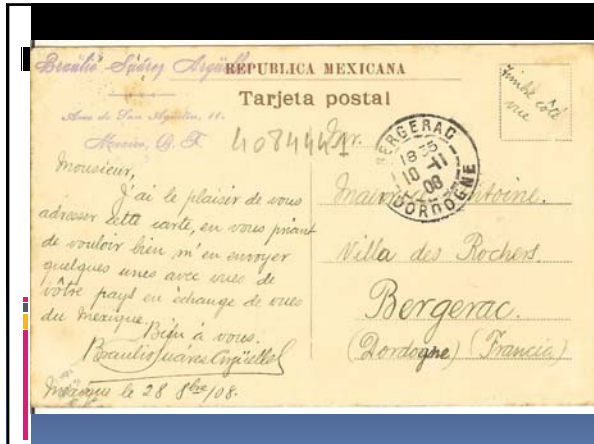 Braulio Suárez Argüelles
REPUBLICA MEXICANA
Tarjeta postal
Timbré côté
vue
Mexico, D. F.
4084441
BERGERAC
18 35
10 -11
08
DORDOGNE
Monsieur,
J'ai le plaisir de vous
adresser cette carte, en vous priant
de vouloir bien m'en envoyer
quelques unes avec vues de
vôtre pays en échange de vues
du Mexique.
Bien à vous.
Braulio Suárez Argüelles
Mexique le 28 8bre/08.
Antoine.
Villa des Rochers.
Bergerac.
(Dordogne) (Francia)